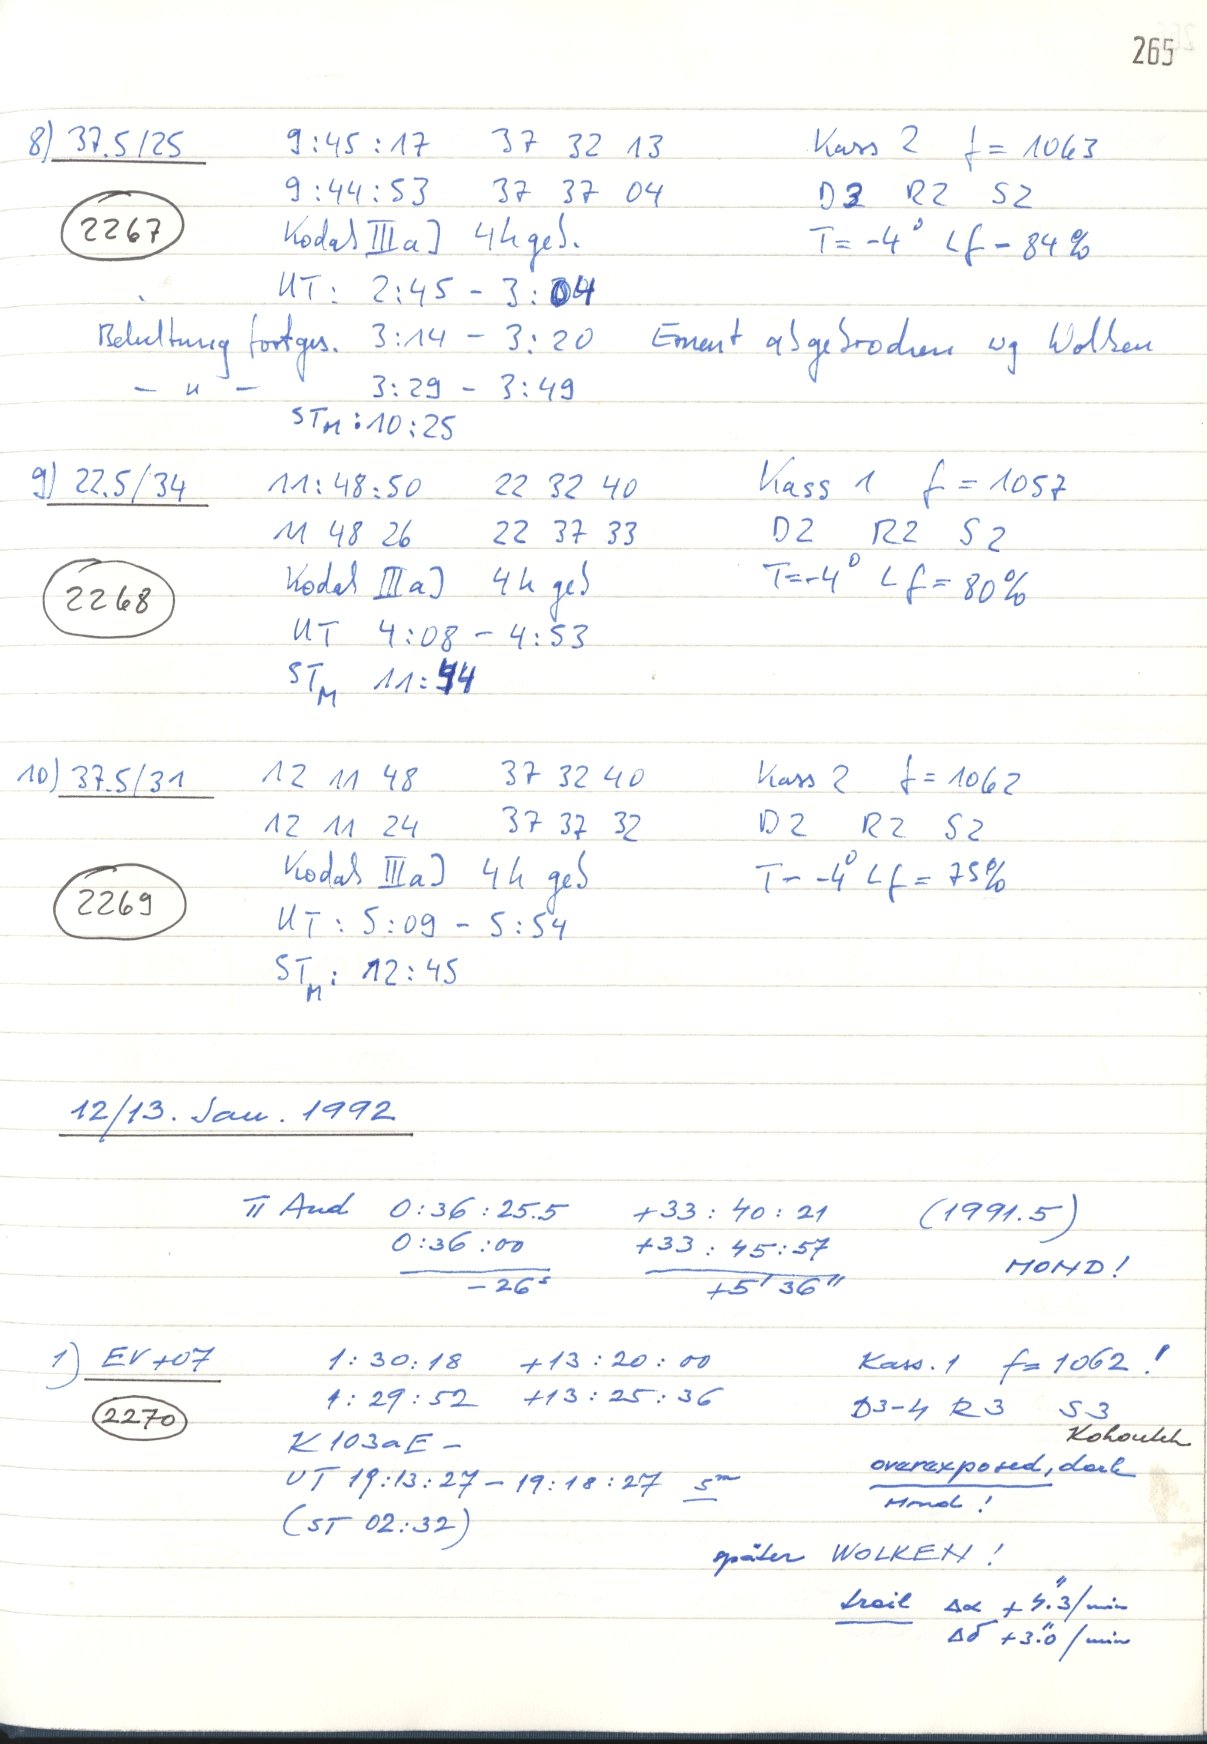 265
8) 37.5/25 9:45:17 37 32 13 Kass 2 f = 1063
9:44:53 37 37 04 D3 R2 S2
2267 Kodak IIIaJ 4h geb. T = -4° Lf - 84%
UT: 2:45 - 3:04
Belichtung fortges. 3:14 - 3:20 Erneut abgebrochen wg Wolken
- " - 3:29 - 3:49
STM: 10:25
9) 22.5/34 11:48:50 22 32 40 Kass 1 f = 1057
11 48 26 22 37 33 D2 R2 S2
2268 Kodak IIIaJ 4h geb T=-4° Lf = 80%
UT 4:08 - 4:53
STM 11:44
10) 37.5/31 12 11 48 37 32 40 Kass 2 f = 1062
12 11 24 37 37 32 D2 R2 S2
2269 Kodak IIIaJ 4h geb T- -4° Lf = 75%
UT: 5:09 - 5:54
STM: 12:45
12/13. Jan. 1992
π And 0:36:25.5 +33:40:21 (1991.5)
0:36:00 +33:45:57 MOND!
-26s +5' 36"
1) EV+07 1:30:18 +13:20:00 Kass. 1 f = 1062!
2270 1:29:52 +13:25:36 D3-4 R3 S3
K 103aE - Kohoutek
UT 19:13:27 - 19:18:27 5m overexposed, dark
(ST 02:32) Mond!
später WOLKEN!
trail Δα +4."3/min
Δδ +3."0/min